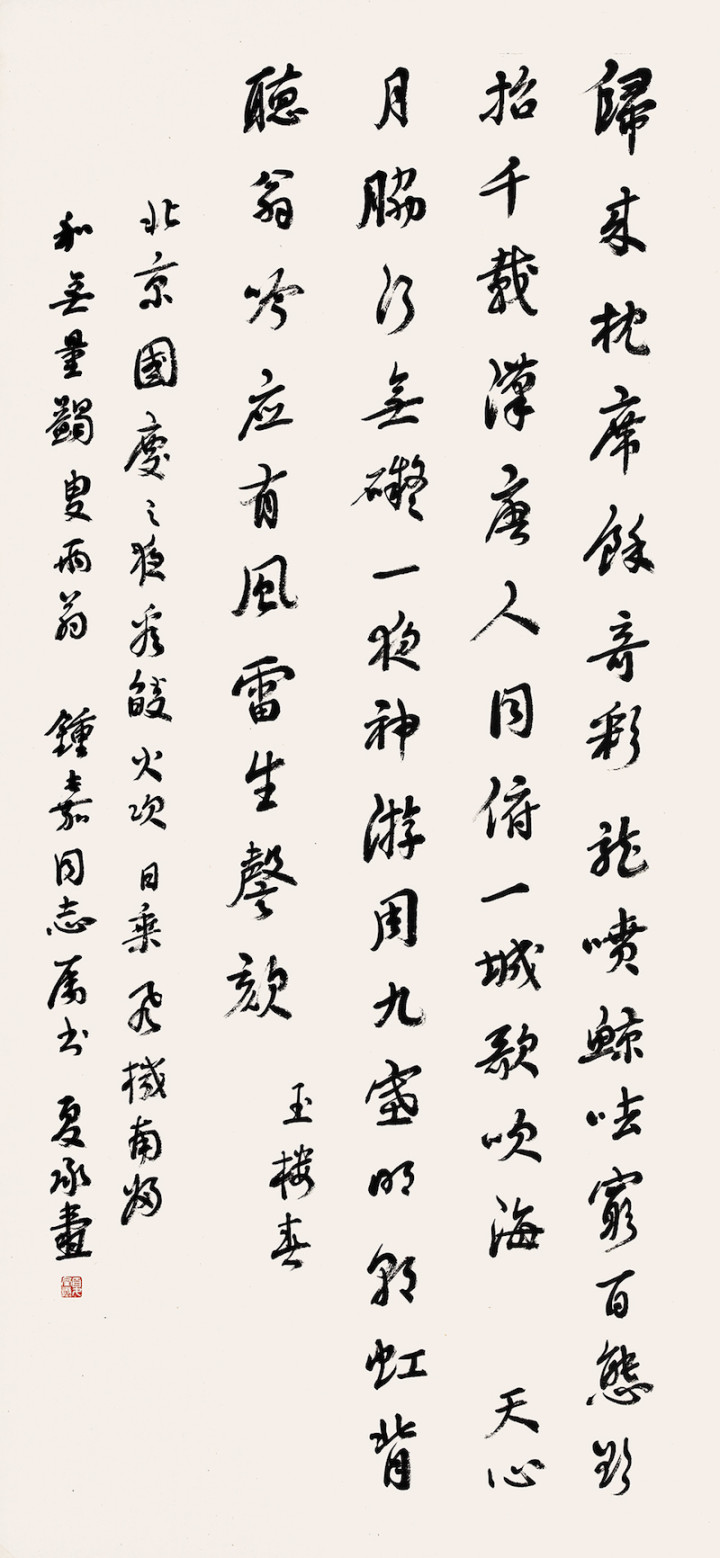 歸来枕席餘奇彩龍噴鯨呿窮百態欲
招千載漢唐人同俯一城歌吹海 天心
月脇行無礙一夜神游周九塞明朝虹背
聽翁吟應有風雷生謦欬
玉樓春
北京國慶之夜看燄火次日乘飛機南歸
和無量蠲叟兩翁 鍾嘉同志屬书 夏承燾